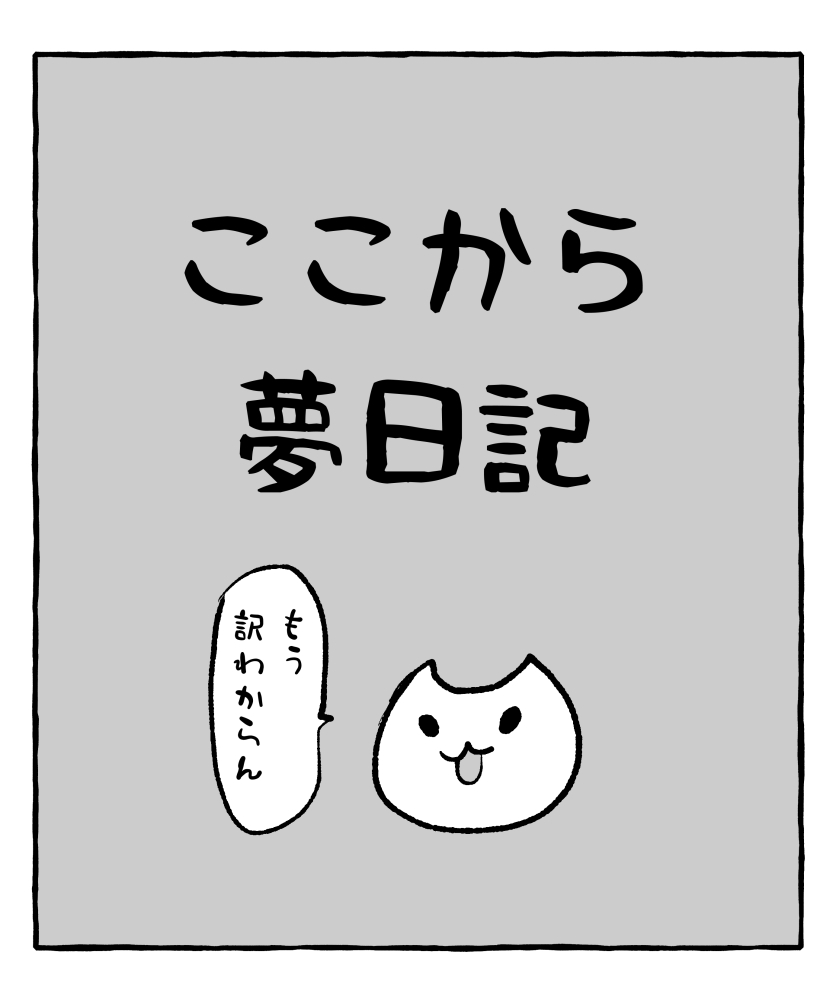 ここから
夢日記
もう
訳わからん